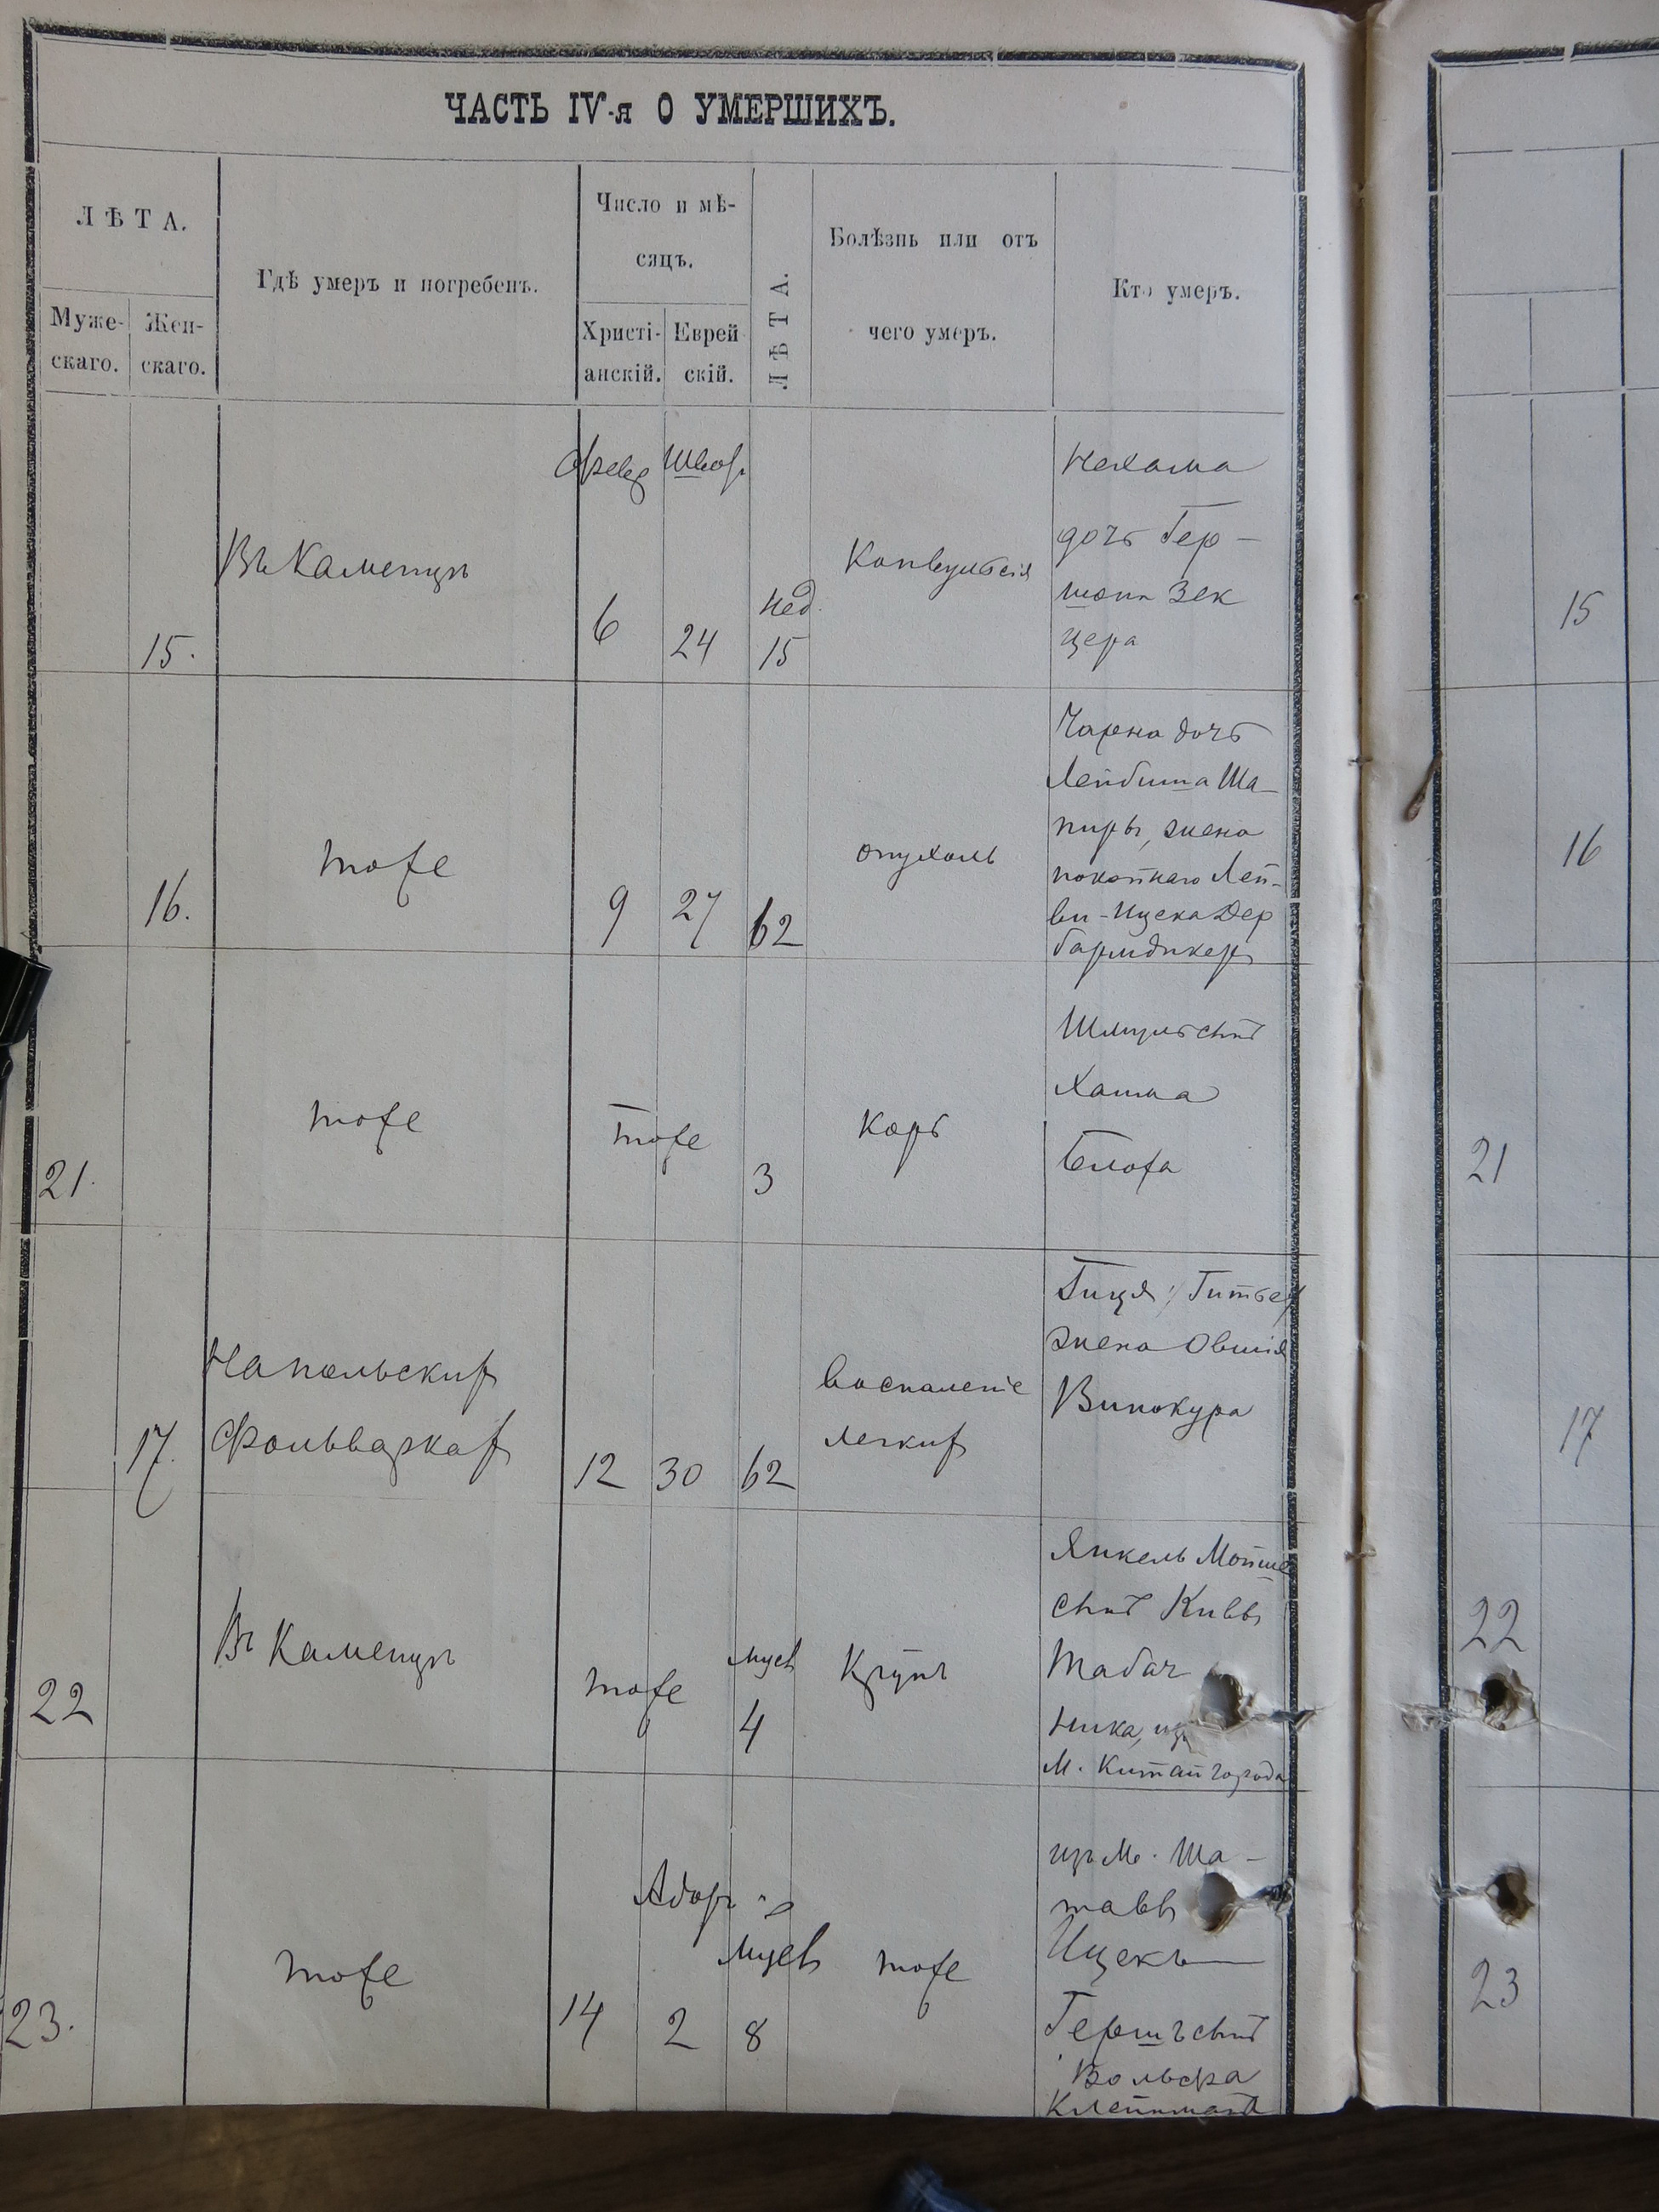 ЧАСТЬ IV-я О УМЕРШИХЪ.
ЛѢТА.
Муже-
скаго.
Жен-
скаго.
Гдѣ умеръ и погребенъ.
Число и мѣ-
сяцъ.
Христі-
анскій.
Еврей
скій.
ЛѢТА.
Болѣзнь или отъ
чего умеръ.
Кто умеръ.
15.
Въ Каменцѣ
Февр
6
Швот
24
Нед.
15
Конвульсія
Нехама
дочь Гер-
шона Зек
цера
15
16.
тоже
9
27
62
опухоль
Чарна дочь
Лейбиша Ша-
пиры, жена
покойнаго Лей-
ви-Ицека Дер
бармдикеръ
16
21.
тоже
тоже
3
Корь
Шмуль сынъ
Хаима
Белофа
21
17.
На польскихъ
Фольваркахъ
12
30
62
Воспаленіе
легкихъ
Гиця /Гитъ
жена Овшія
Винокура
17
22
Въ Каменцѣ
тоже
мцев
4
Крупъ
Янкель Мойше
сынъ Кивы
Табач
ника, изъ
м. Китайгорода
22
23.
тоже
14
Адаръ
2
мцев
8
тоже
изъ м. Ша-
тавы
Ицекъ
Гершъ сынъ
Вольфа
Клейтмана
23